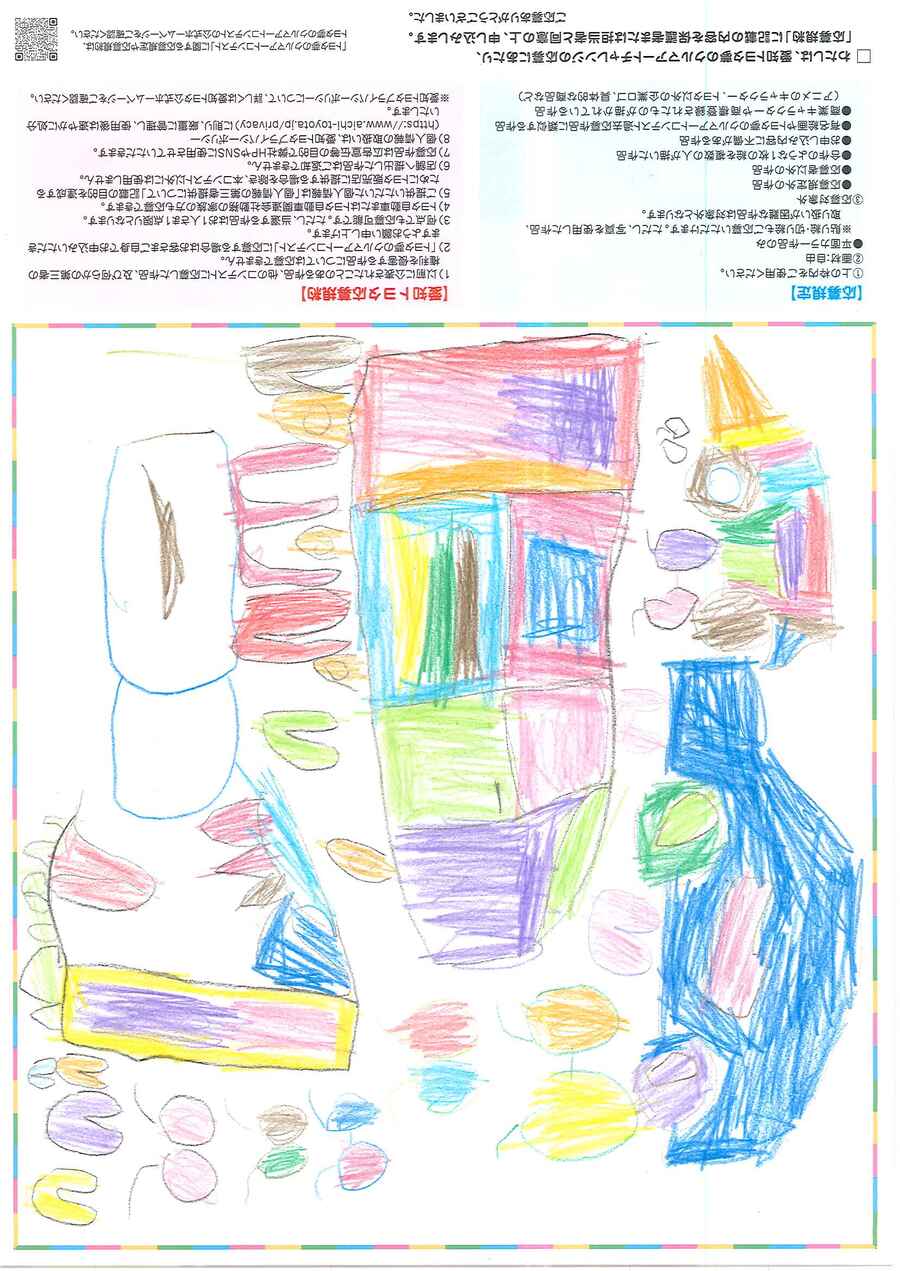 【応募規定】
①上の枠内をご使用ください。
②画材:自由
●平面カラー作品のみ
※貼り絵・切り絵も応募いただけます。ただし、写真を使用した作品、
取り扱いが困難な作品は対象外となります。
③応募対象外
●応募規定外の作品
●応募者以外の作品
●合作のような1枚の絵を複数人が描いた作品
●お申し込み内容に不備がある作品
●有名絵画やトヨタ夢のクルマアートコンテスト過去応募作品に類似する作品
●商業キャラクターや商標登録されたものが描かれている作品
(アニメのキャラクター、トヨタ以外の企業ロゴ、具体的な商品など)
【愛知トヨタ応募規約】
1)以前に公表されたことのある作品、他のコンテストに応募した作品、及び何らかの第三者の
権利を侵害する作品については応募できません。
2)「トヨタ夢のクルマアートコンテスト」に応募する場合はお客さまご自身でお申込みいただき
ますようお願い申し上げます。
3)何点でも応募可能です。ただし、当選する作品は1人さま1点限りとなります。
4)トヨタ自動車またはトヨタ自動車関連会社勤務の家族の方も応募できます。
5)ご提供いただいた個人情報は「個人情報の第三者提供について」記載の目的を達成する
ためにトヨタ販売店に提供する場合を除き、本コンテスト以外には使用しません。
6)店舗へ提出した作品はご返却できません。
7)応募作品は広告宣伝等の目的で弊社HPやSNSに使用させていただきます。
8)個人情報の取扱いは、愛知トヨタプライバシーポリシー
(https://www.aichi-toyota.jp/privacy)に則り、厳重に管理し、使用後は速やかに処分
いたします。
※愛知トヨタプライバシーポリシーについて、詳しくは愛知トヨタ公式ホームページをご確認ください。
□わたしは、愛知トヨタ夢のクルマアートチャレンジの応募にあたり、
「応募規約」に記載の内容を保護者または担当者と同意の上、申し込みします。
ご応募ありがとうございました。
「トヨタ夢のクルマアートコンテスト」に関する応募規定や応募規約は、
トヨタ夢のクルマアートコンテストの公式ホームページをご確認ください。